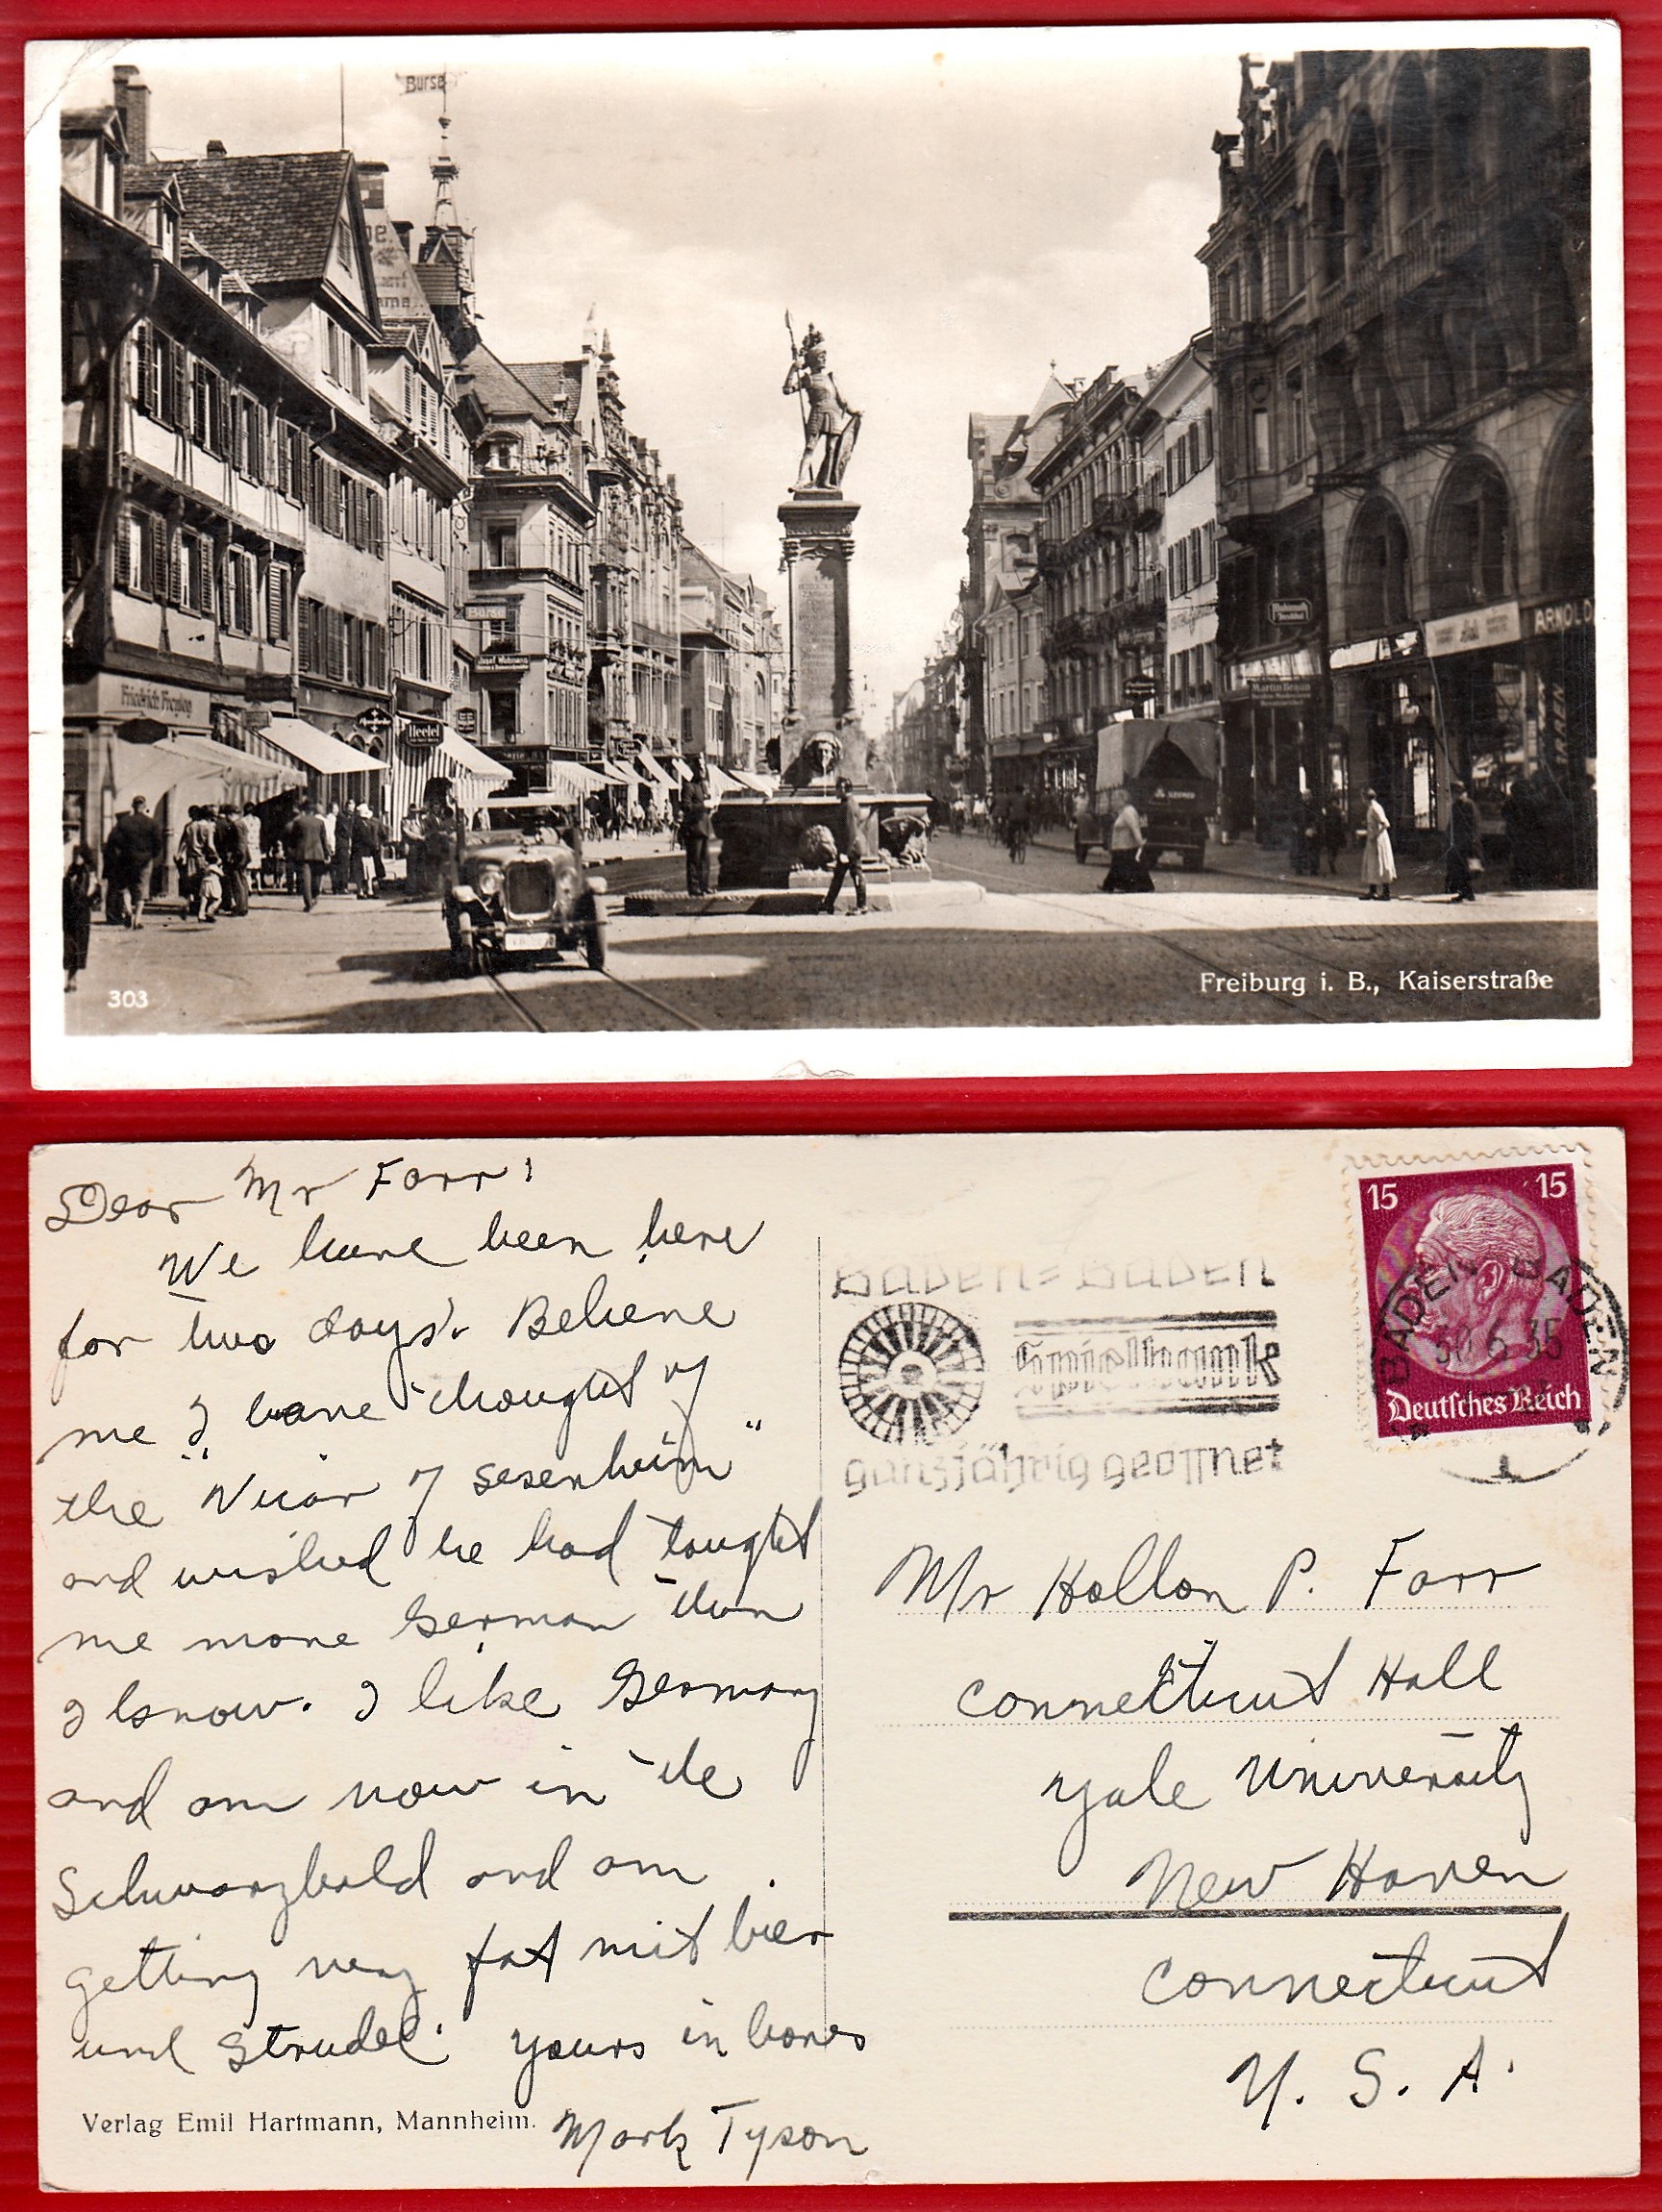 Burse
Burse
Josef Wohmann
Friedrich Freytag
Hectel
Martin Braun
ARNOLD
303
Freiburg i. B., Kaiserstraße
Dear Mr Farr,
We have been here
for two days. Believe
me I have thought of
the "Vicar of Sesenheim"
and wished he had taught
me more German than
I know. I like Germany
and am now in the
Schwarzwald and am
getting very fat mit bier
und Strudel. Yours in
Mark Tyson
Verlag Emil Hartmann, Mannheim.
Baden=Baden
Spielbank
ganzjährig geöffnet
15 15
Deutsches Reich
BADEN BADEN
30.6.35
Mr Hollon P. Farr
Connecticut Hall
Yale University
New Haven
Connecticut
U. S. A.